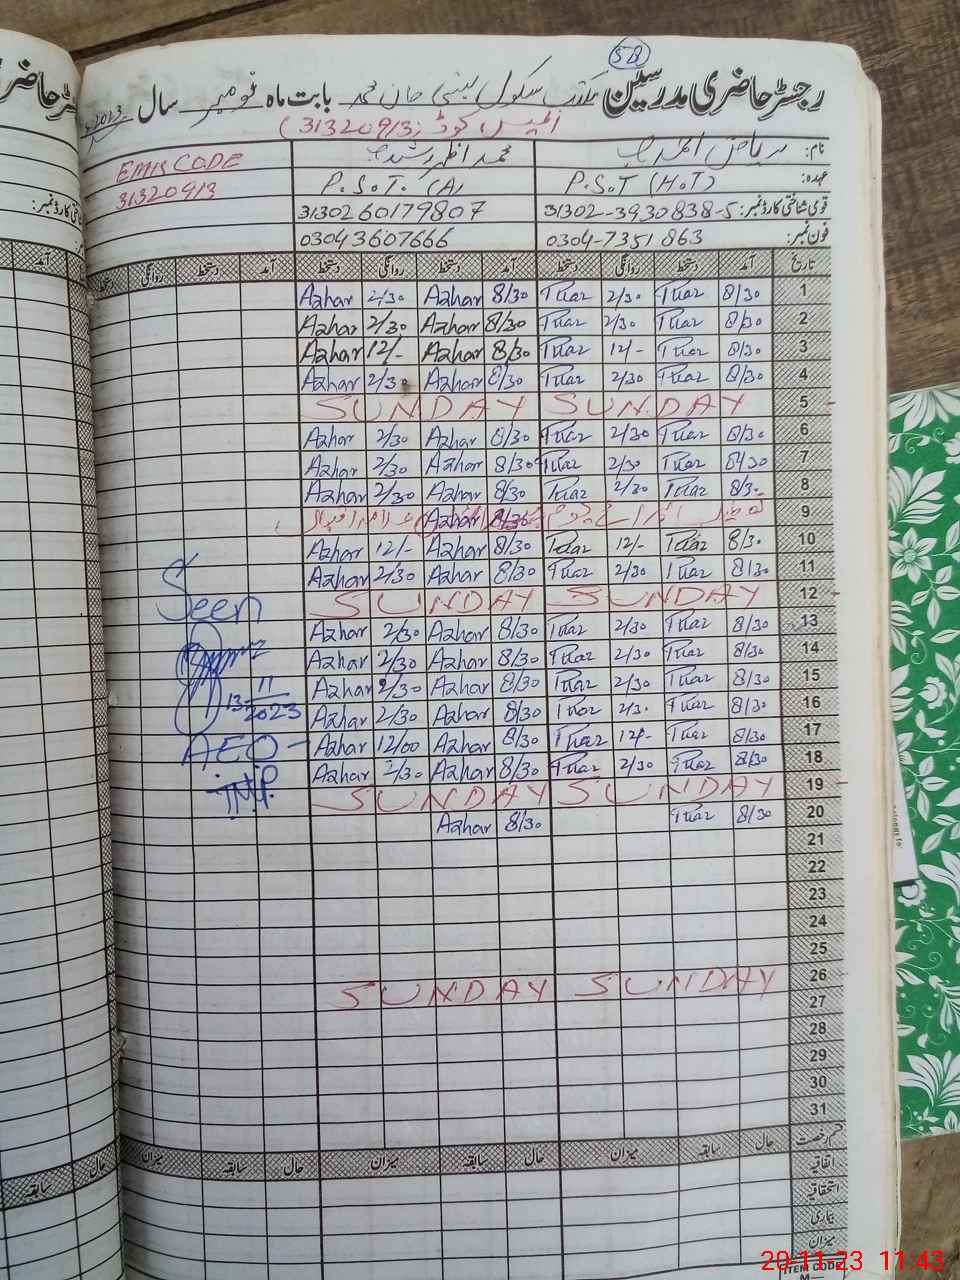 58
رجسٹر حاضری مدرسین مکتب سکول بستی جان محمد بابت ماہ نومبر سال 2023
ایمس کوڈ (31320913)
نام: ریاض احمد محمد اظہر رشید EMIS CODE
عہدہ: P.S.T (H.T) P.S.T. (A) 31320913
قومی شناختی کارڈ نمبر: 31302-3930838-5 3130260179807
فون نمبر: 0304-7351863 03043607666
تاریخ آمد دستخط روانگی دستخط آمد دستخط روانگی دستخط آمد دستخط روانگی دستخط
1 8/30 2/30 8/30 Azhar 2/30 Azhar
2 8/30 2/30 8/30 Azhar 2/30 Azhar
3 8/30 12/- 8/30 Azhar 12/- Azhar
4 8/30 2/30 8/30 Azhar 2/30 Azhar
5 SUNDAY SUNDAY
6 8/30 2/30 8/30 Azhar 2/30 Azhar
7 8/30 2/30 8/30 Azhar 2/30 Azhar
8 8/30 2/30 8/30 Azhar 2/30 Azhar
9 8/30 Azhar
10 8/30 12/- 8/30 Azhar 12/- Azhar
11 8/30 2/30 8/30 Azhar 2/30 Azhar
12 SUNDAY SUNDAY
13 8/30 2/30 8/30 Azhar 2/30 Azhar
14 8/30 2/30 8/30 Azhar 2/30 Azhar
15 8/30 2/30 8/30 Azhar 2/30 Azhar
16 8/30 2/30 8/30 Azhar 2/30 Azhar
17 8/30 12/- 8/30 Azhar 12/00 Azhar
18 8/30 2/30 8/30 Azhar 2/30 Azhar
19 SUNDAY SUNDAY
20 8/30 8/30 Azhar
21
22
23
24
25
26 SUNDAY SUNDAY
27
28
29
30
31
Seen
13-11-2023
AEO-
قسم رخصت حال سابقہ میزان حال سابقہ میزان حال سابقہ میزان
اتفاقیہ
استحقاقیہ
بیماری
میزان
ITEM CODE
20-11-23 11:43